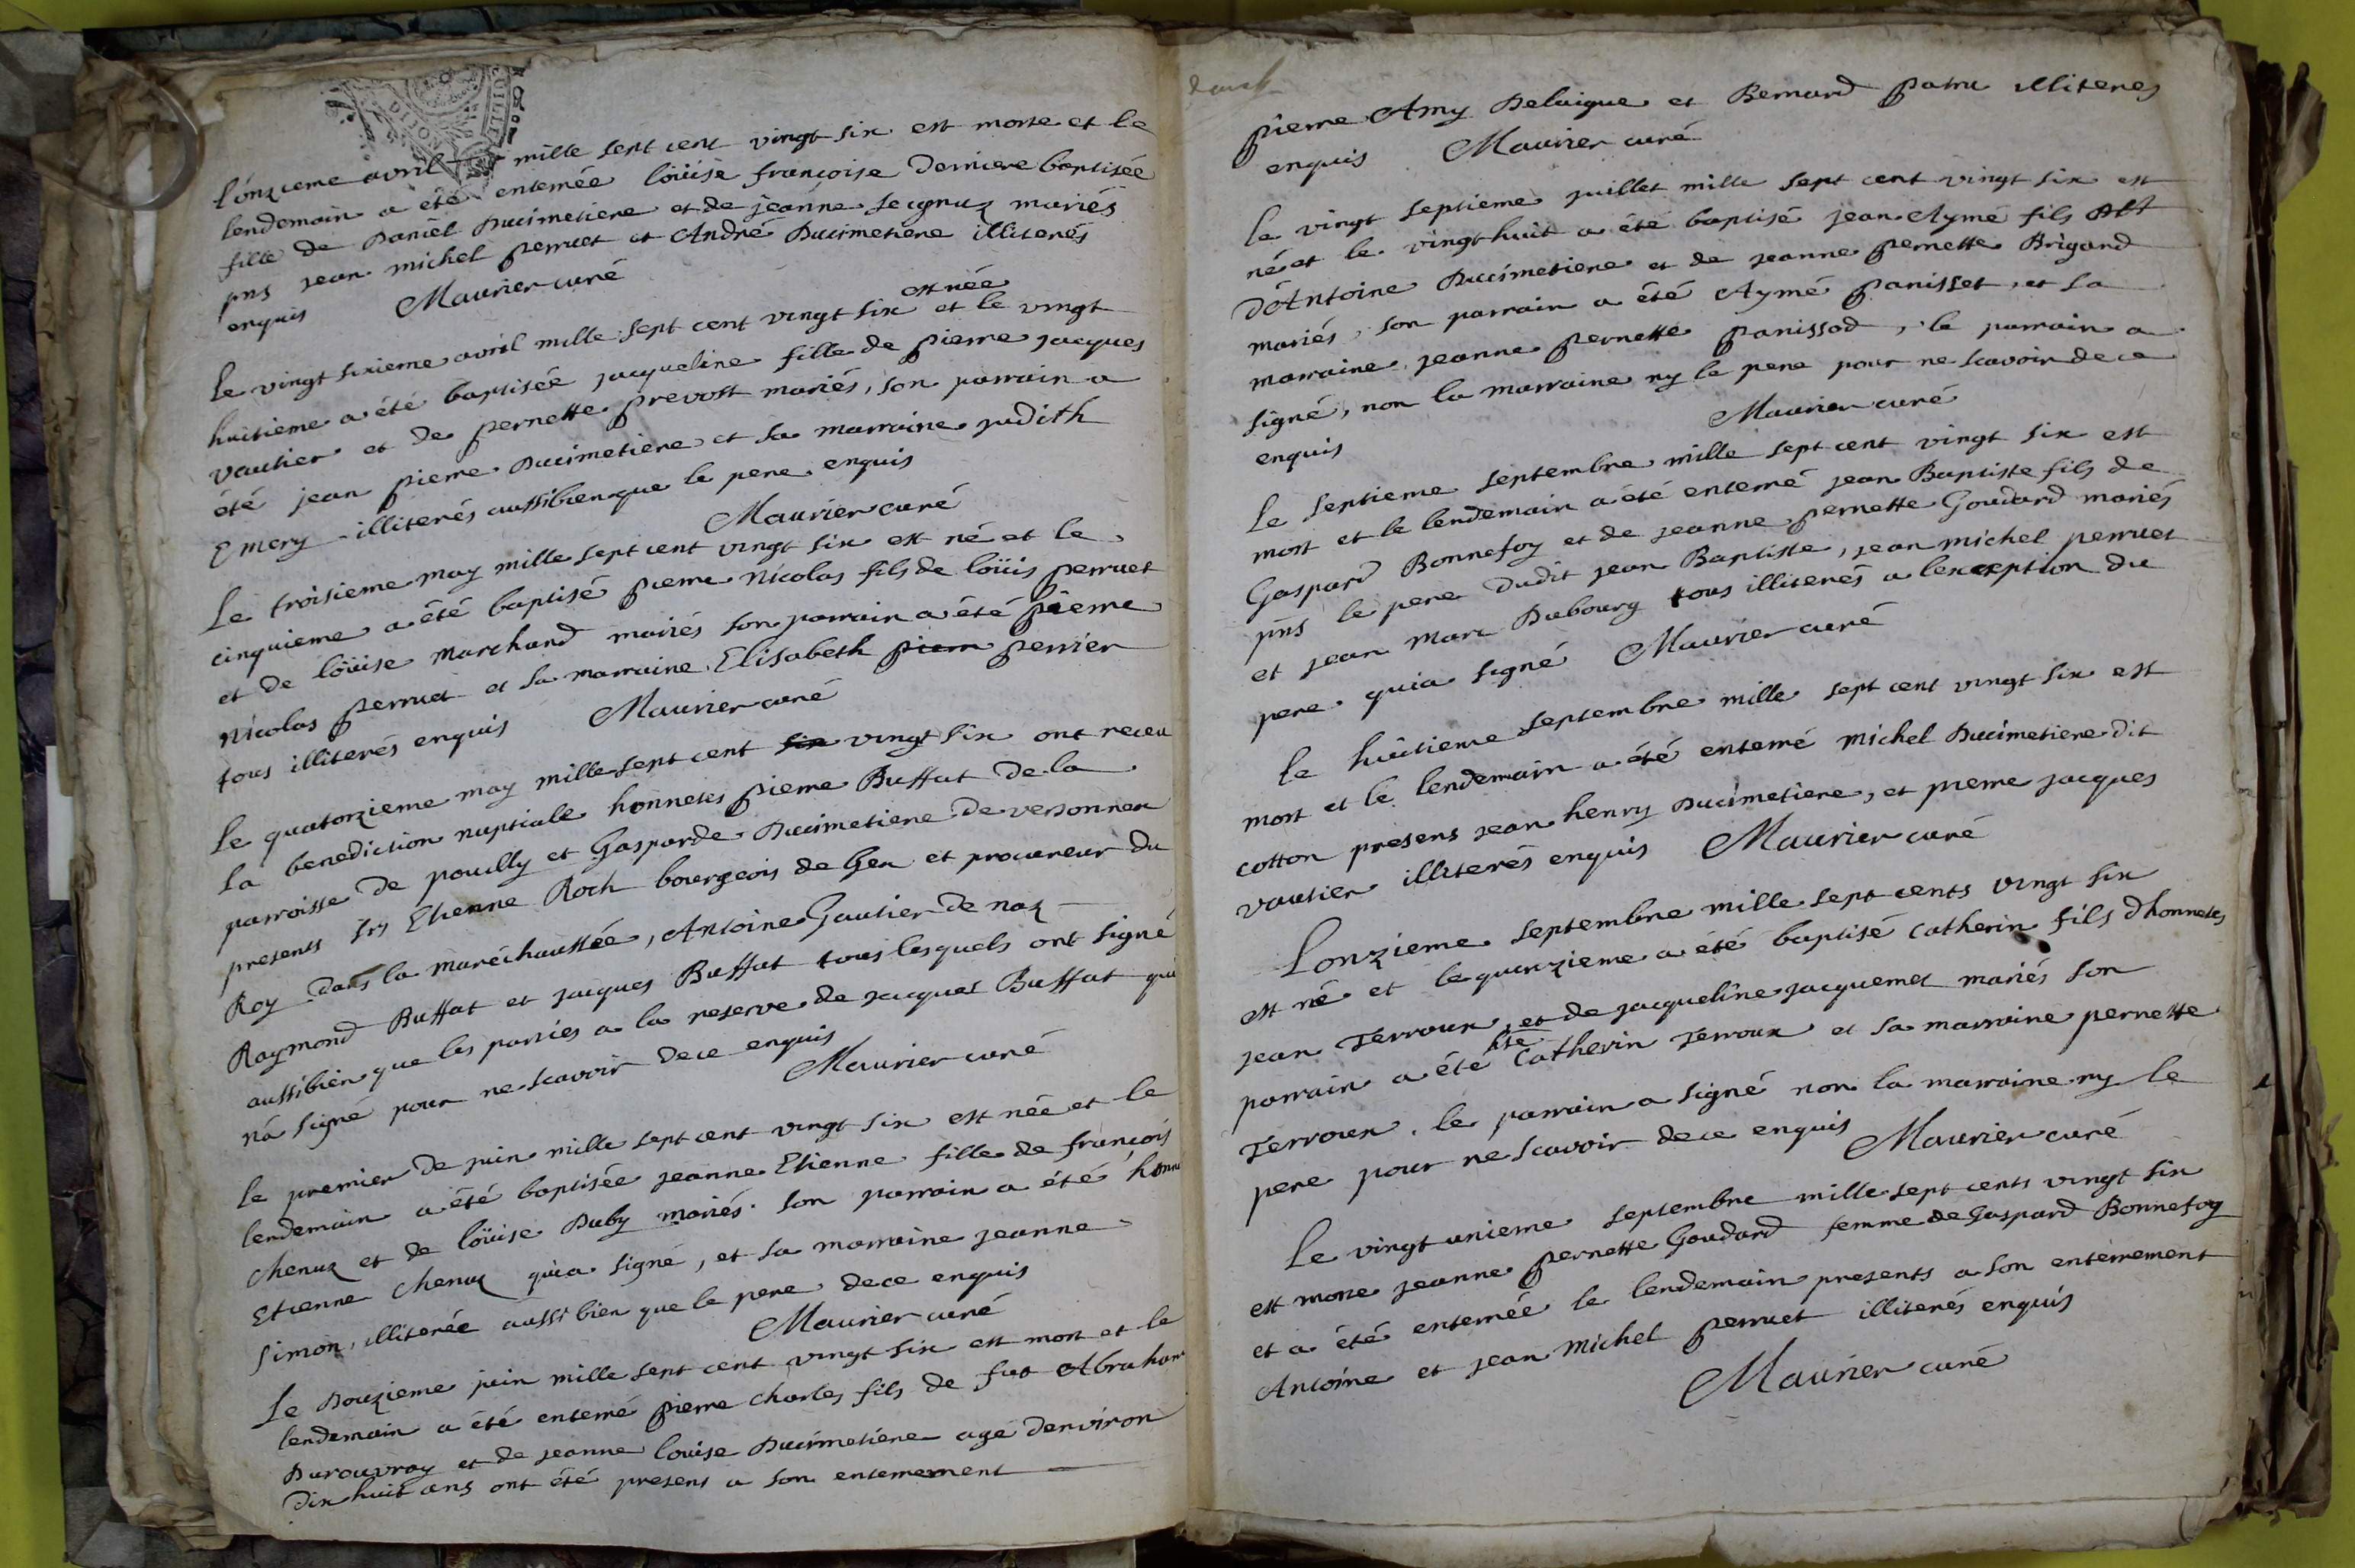 L'onzieme avril mille sept cent vingt six est morte et le
lendemain a été enterrée loüise françoise derniere baptisée
fille de Daniel Ducimetiere et de jeanne mariés
pns jean michel perruet et André Ducimetiere illiterés
enquis Maurier curé
est née
Le vingt sixieme avril mille sept cent vingt six et le vingt
huitieme a été baptisée jacqueline fille de pierre jacques
vautier et de pernette prevost mariés, son parrain a
été jean pierre Ducimetiere et sa marraine judith
Emery illiterés aussibien que le pere enquis
Maurier curé
Le troisieme may mille sept cent vingt six est né et le
cinquieme a été baptisé pierre Nicolas fils de loüis perruet
et de loüise marchand mariés son parrain a été pierre
Nicolas perruet et sa marraine Elisabeth pierr perrier
tous illiterés enquis Maurier curé
Le quatorzieme may mille sept cent six vingt six ont receu
la benediction nuptiale honnetes pierre Buffat de la
parroisse de pouilly et Gasparde Ducimetiere de versonnex
presents Etienne Roch bourgeois de Gex et procureur du
Roy dans la maréchaussée, Antoine Gautier de naz
Raymond Buffat et jacques Buffat tous lesquels ont signé
aussibien que les parties a la reserve de jacques Buffat qui
n'a signé pour ne scavoir de ce enquis
Maurier curé
Le premier de juin mille sept cent vingt six est née et le
lendemain a été baptisée jeanne Etienne fille de françois
Chenuz et de loüise Duby mariés. son parrain a été honn
Etienne Chenuz qui a signé, et sa marraine jeanne
Simon, illiterée aussi bien que le pere de ce enquis
Maurier curé
Le Douzieme juin mille sept cent vingt six est mort et le
lendemain a été enterré pierre Charles fils de fut Abraham
Durouvray et de jeanne louise Ducimetiere agé denviron
Dix huit ans ont été present a son enterrement
pierre Amy Delaigue et Bernard patru illiteres
enquis Maurier curé
Le vingt septieme juillet mille sept cent vingt six est
né et le vingt huit a été baptisé jean Aymé fils
D'Antoine Ducimetiere et de jeanne pernette Brigand
mariés, son parrain a été Aymé panisset, et sa
marraine jeanne pernette panissod, le parrain a
signé, non la marraine ny le pere pour ne scavoir de ce
enquis Maurier curé
Le septieme septembre mille sept cent vingt six est
mort et le lendemain a été enterré jean Baptiste fils de
Gaspard Bonnefoy et de jeanne pernette Goudard mariés
pns le pere dudit jean Baptiste, jean michel perruet
et jean marc Dubourg tous illiterés a lexception du
pere qui a signé Maurier curé
Le huitieme septembre mille sept cent vingt six est
mort et le lendemain a été enterré michel Ducimetiere dit
cotton presens jean henry Ducimetiere, et pierre jacques
vautier illiterés enquis Maurier curé
Lonzieme septembre mille sept cents vingt six
est né et le quinzieme a été baptisé catherin fils dhonnetes
jean Terroux, et de jacqueline jacquemet mariés son
hte
parrain a été Catherin Terroux et sa marraine pernette
Terroux. le parrain a signé non la marraine ny le
pere pour ne scavoir de ce enquis Maurier curé
Le vingt unieme septembre mille sept cents vingt six
est morte jeanne pernette Goudard femme de Gaspard Bonnefoy
et a été enterrée le lendemain presents a son enterrement
Antoine et jean michel perruet illiterés enquis
Maurier curé